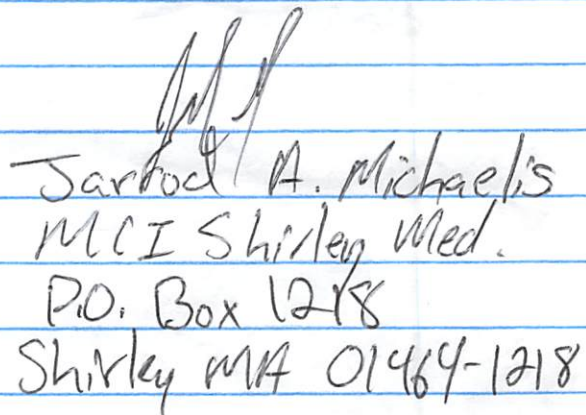 Jarrod A. Michaelis
MCI Shirley Med.
P.O. Box 1218
Shirley MA 01464-1218